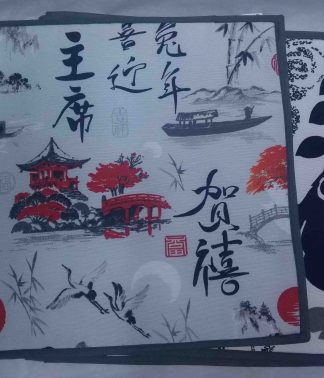 主席
喜迎
兔年
贺禧